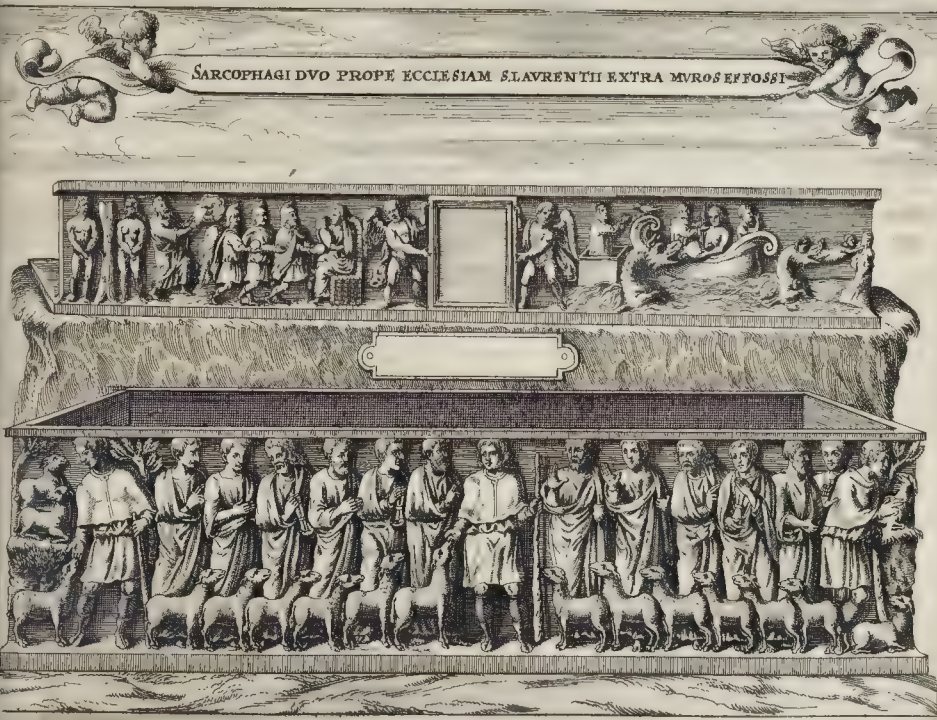 SARCOPHAGI DVO PROPE ECCLESIAM S. LAVRENTII EXTRA MVROS EFFOSSI